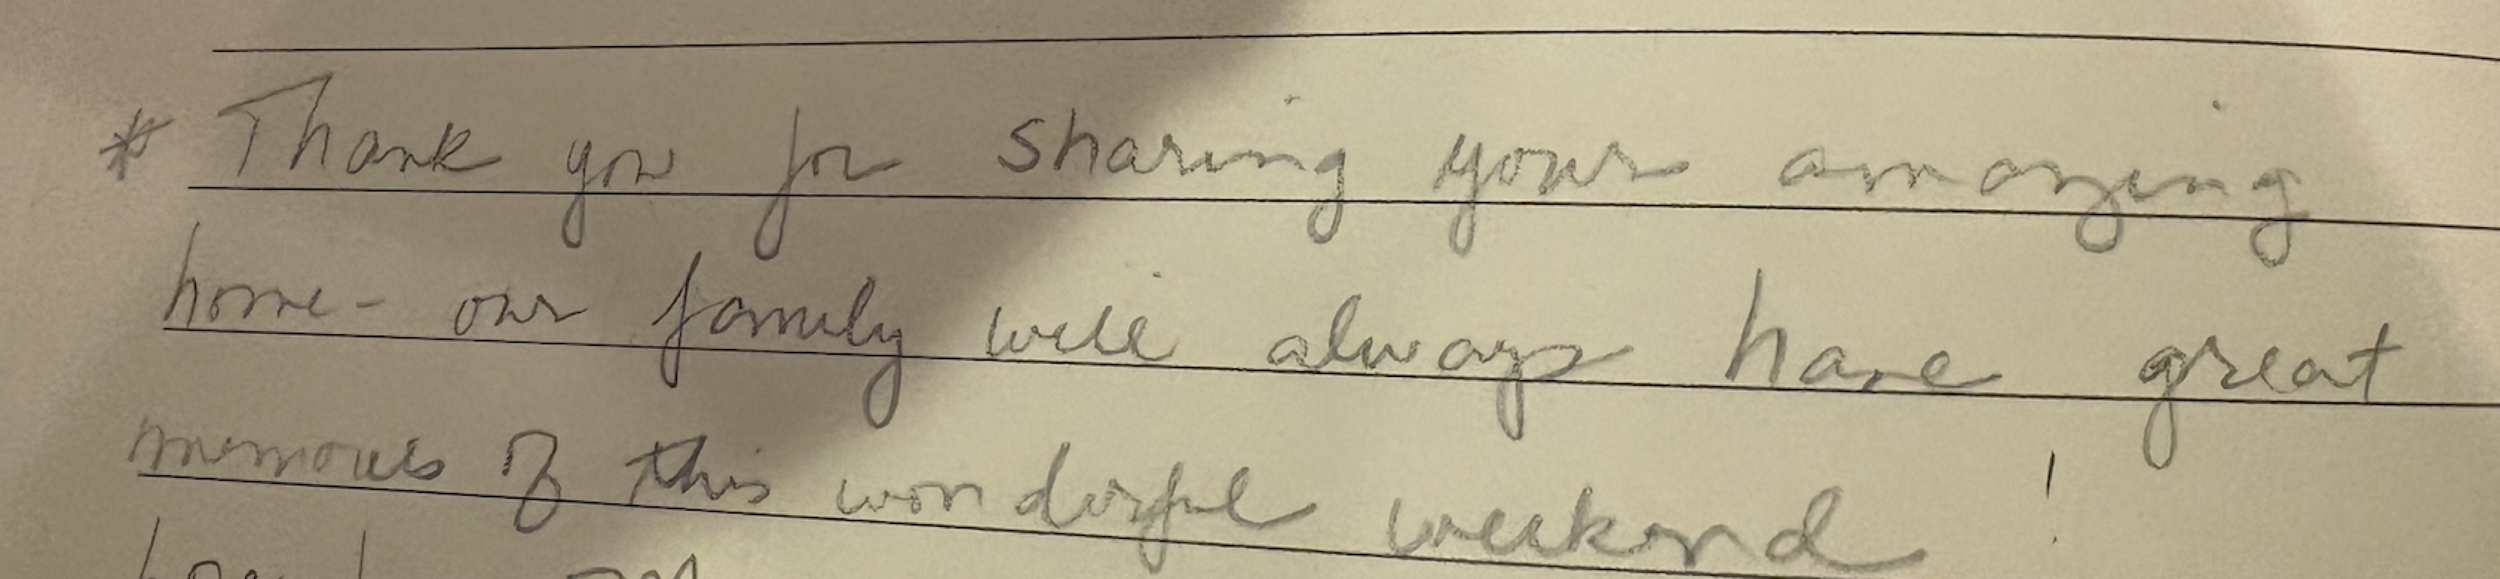 * Thank you for sharing your amazing
home - our family will always have great
memories of this wonderful weekend !